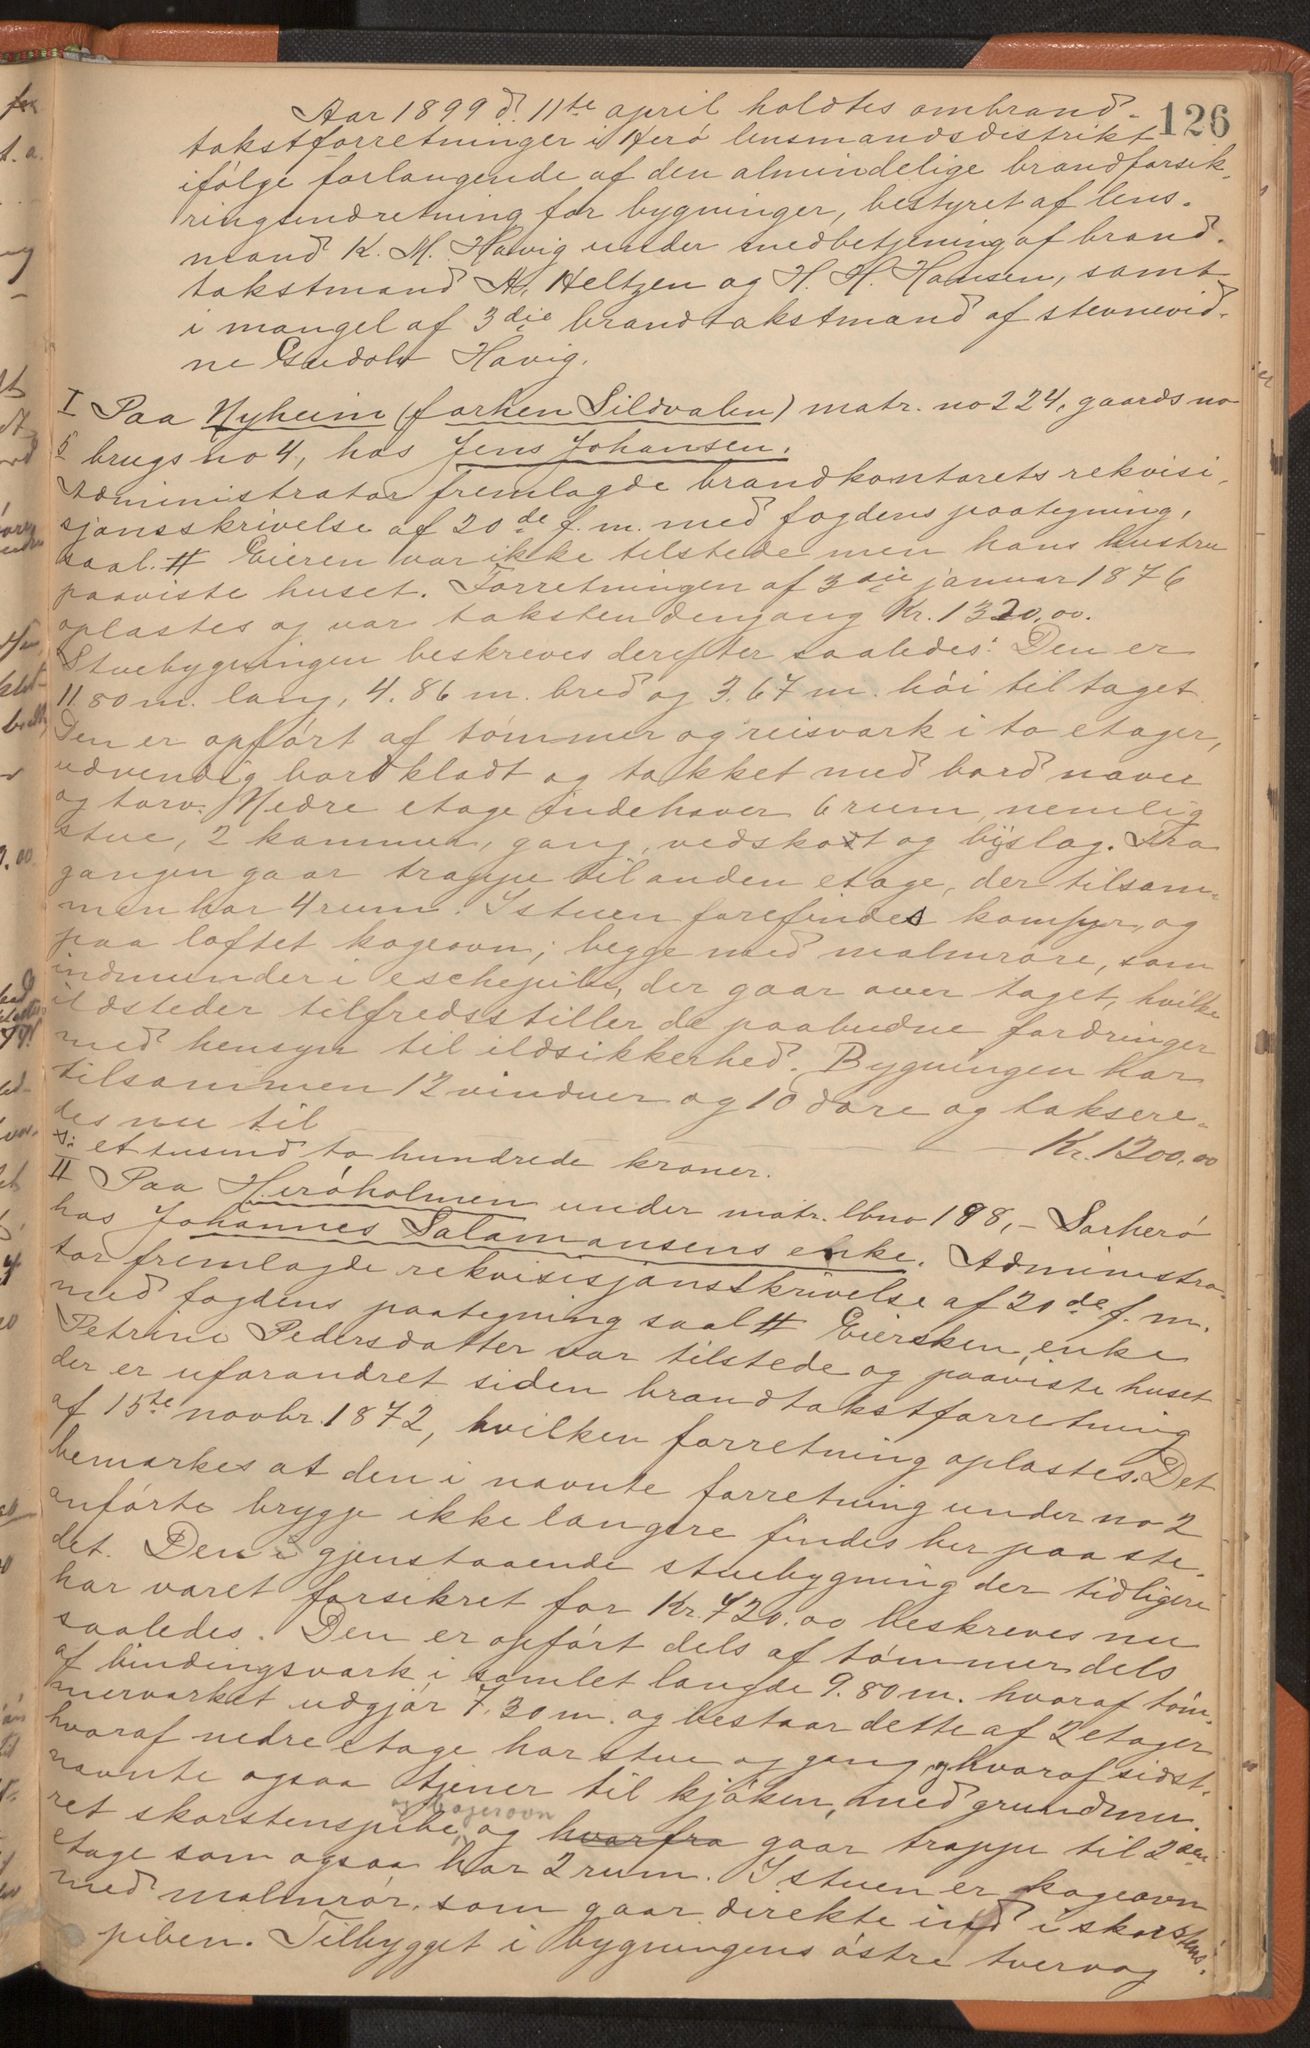 126
Aar 1899 d. 11te april holdtes ombrand-
takstforretninger i Herø lensmandsdistrikt
ifølge forlangende af den almindelige brandforsik-
ringsindretning for bygninger, bestyret af lens-
mand K. M. Havig under medbetjening af brand-
takstmand A. Heltzen og H. H. Hansen, samt
i mangel af 3die brandtakstmand af stevnevid-
ne Gudolv Havig.
I Paa Nyheim (forhen Sildvalen) matr. no 224, gaards no
5 brugs no 4, hos Jens Johansen.
Administrator fremlagde brandkontorets rekvisi-
sjonsskrivelse af 20de f. m. med fogdens paategning,
saal. # Eieren var ikke tilstede men hans hustru
paaviste huset. Forretningen af 3die januar 1876
oplæstes og var taksten dengang Kr. 1320,00.
Stuebygningen beskreves derefter saaledes: Den er
11.80 m. lang, 4.86 m. bred og 3.67 m. høi til taget.
Den er opført af tømmer og reisverk i to etager,
udvendig bordklædt og tækket med bord næver
og torv. Nedre etage indehaver 6 rum, nemlig
stue, 2 kammer, gang, vedskott og bislag. Fra
gangen gaar trappe til anden etage, der tilsam-
men har 4 rum. I stuen forefindes komfyr, og
paa loftet kogeovn; begge med malmrøre, som
indmunder i eschepibe, der gaar over taget, hvilke
ildsteder tilfredsstiller de paabudne fordringer
med hensyn til ildsikkerhed. Bygningen har
tilsammen 12 vinduer og 10 døre og taksere-
des nu til — Kr. 1200,00
s: et tusind to hundrede kroner.
II Paa Herøholmen under matr. lbno 198, – Sørherø
hos Johannes Salamonsens enke. Administra-
tor fremlagde rekvisisjonsskrivelse af 20de f. m.
med fogdens paategning saal # Eiersken, enke
Petrine Pedersdatter var tilstede og paaviste huset
der er uforandret siden brandtakstforretning
af 15te novbr. 1872, hvilken forretning oplæstes. Det
bemærkes at den i nævnte forretning under no 2
anførte brygge ikke længere findes her paa ste-
det. Den i gjenstaaende stuebygning der tidligere
har været forsikret for Kr. 720.00 beskreves nu
saaledes. Den er opført dels af tømmer dels
af bindingsværk i samlet længde 9.80 m. hvoraf tøm-
merværket udgjør 7.30 m. og bestaar dette af 2 etager
hvoraf nedre etage har stue og gang, og hvoraf sidst-
nævnte ogsaa tjener til kjøken, med grundmu-
og bagerovn
ret skorstenspibe, og hvorfra gaar trappe til 2den
etage som ogsaa har 2 rum. I stuen er kogeovn
med malmrør, som gaar direkte ind i skorstens-
piben. Tilbygget i bygningens østre tvervæg